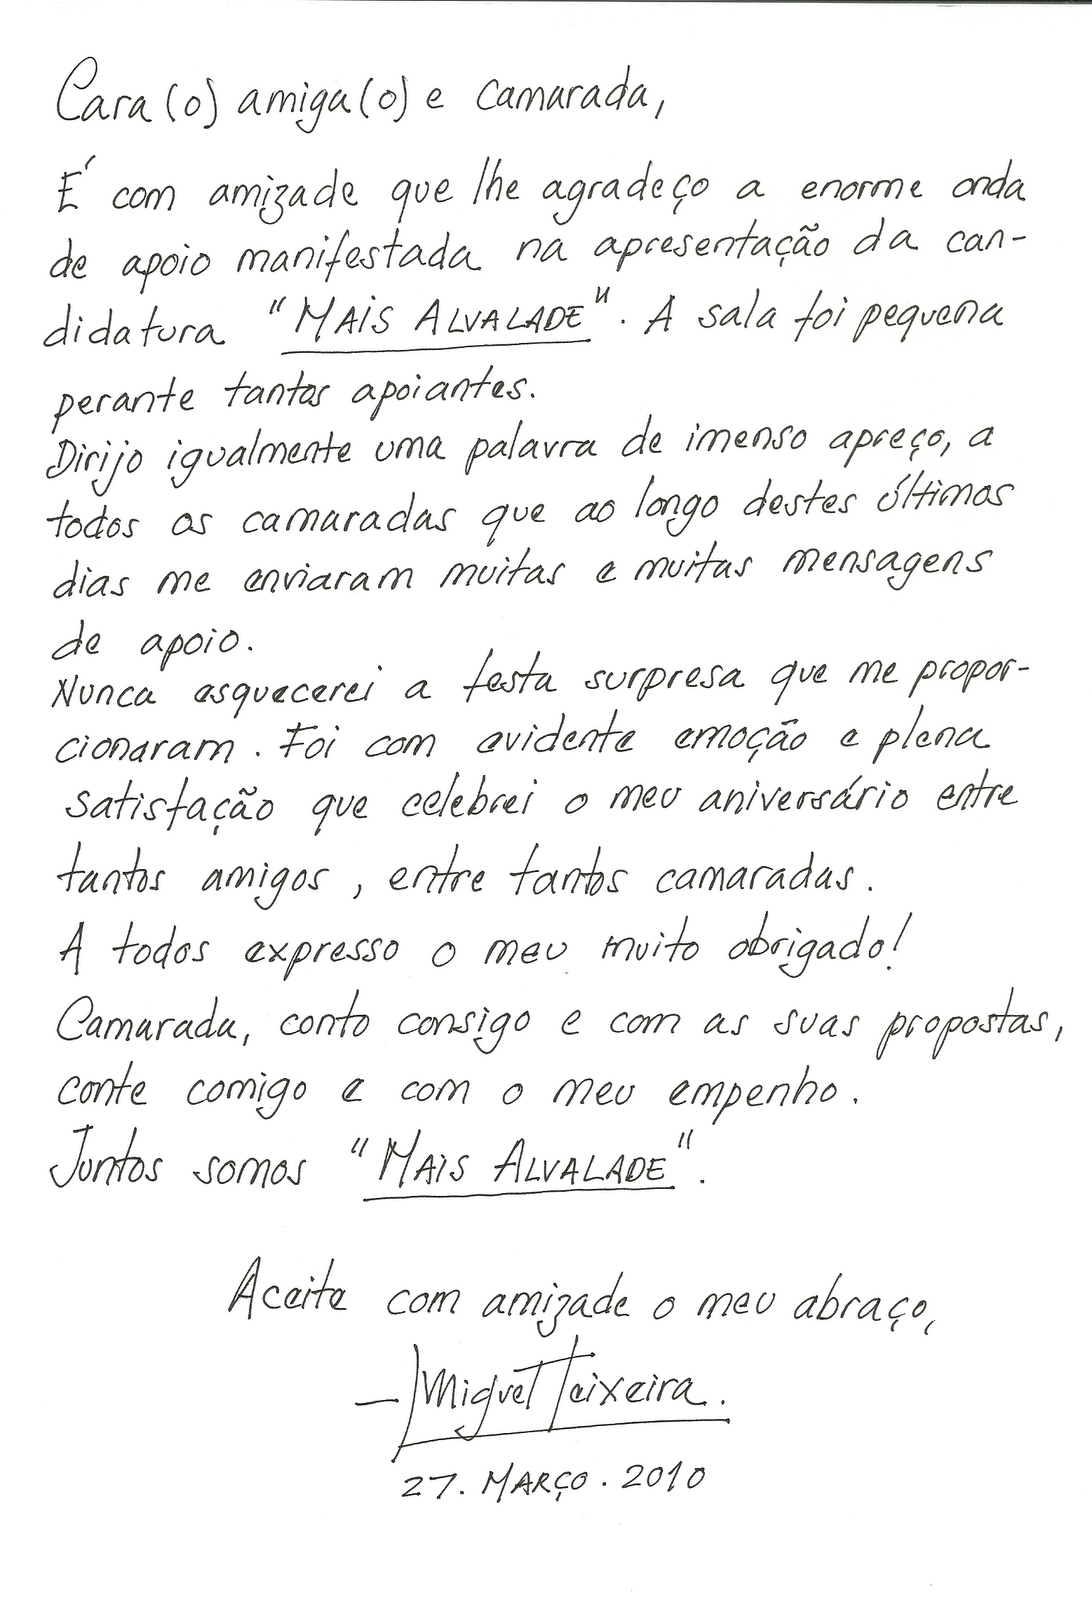 Cara(o) amiga(o) e camarada,
É com amizade que lhe agradeço a enorme onda
de apoio manifestada na apresentação da can-
didatura "MAIS ALVALADE". A sala foi pequena
perante tantos apoiantes.
Dirijo igualmente uma palavra de imenso apreço, a
todos os camaradas que ao longo destes últimos
dias me enviaram muitas e muitas mensagens
de apoio.
Nunca esquecerei a festa surpresa que me propor-
cionaram. Foi com evidente emoção e plena
satisfação que celebrei o meu aniversário entre
tantos amigos, entre tantos camaradas.
A todos expresso o meu muito obrigado!
Camarada, conto consigo e com as suas propostas,
conte comigo e com o meu empenho.
Juntos somos "MAIS ALVALADE".
Aceite com amizade o meu abraço,
— Miguel Teixeira.
27. MARÇO. 2010